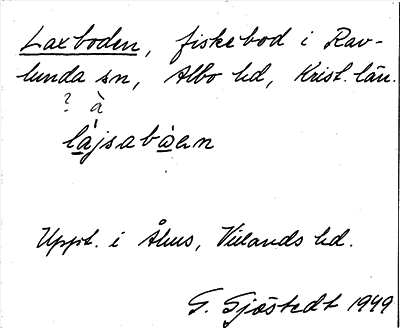 Laxboden, fiskebod i Rav-
lunda sn, Albo hd, Krist. län.
? à
làjsabàen
Uppt. i Åhus, Villands hd.
G. Sjöstedt 1949